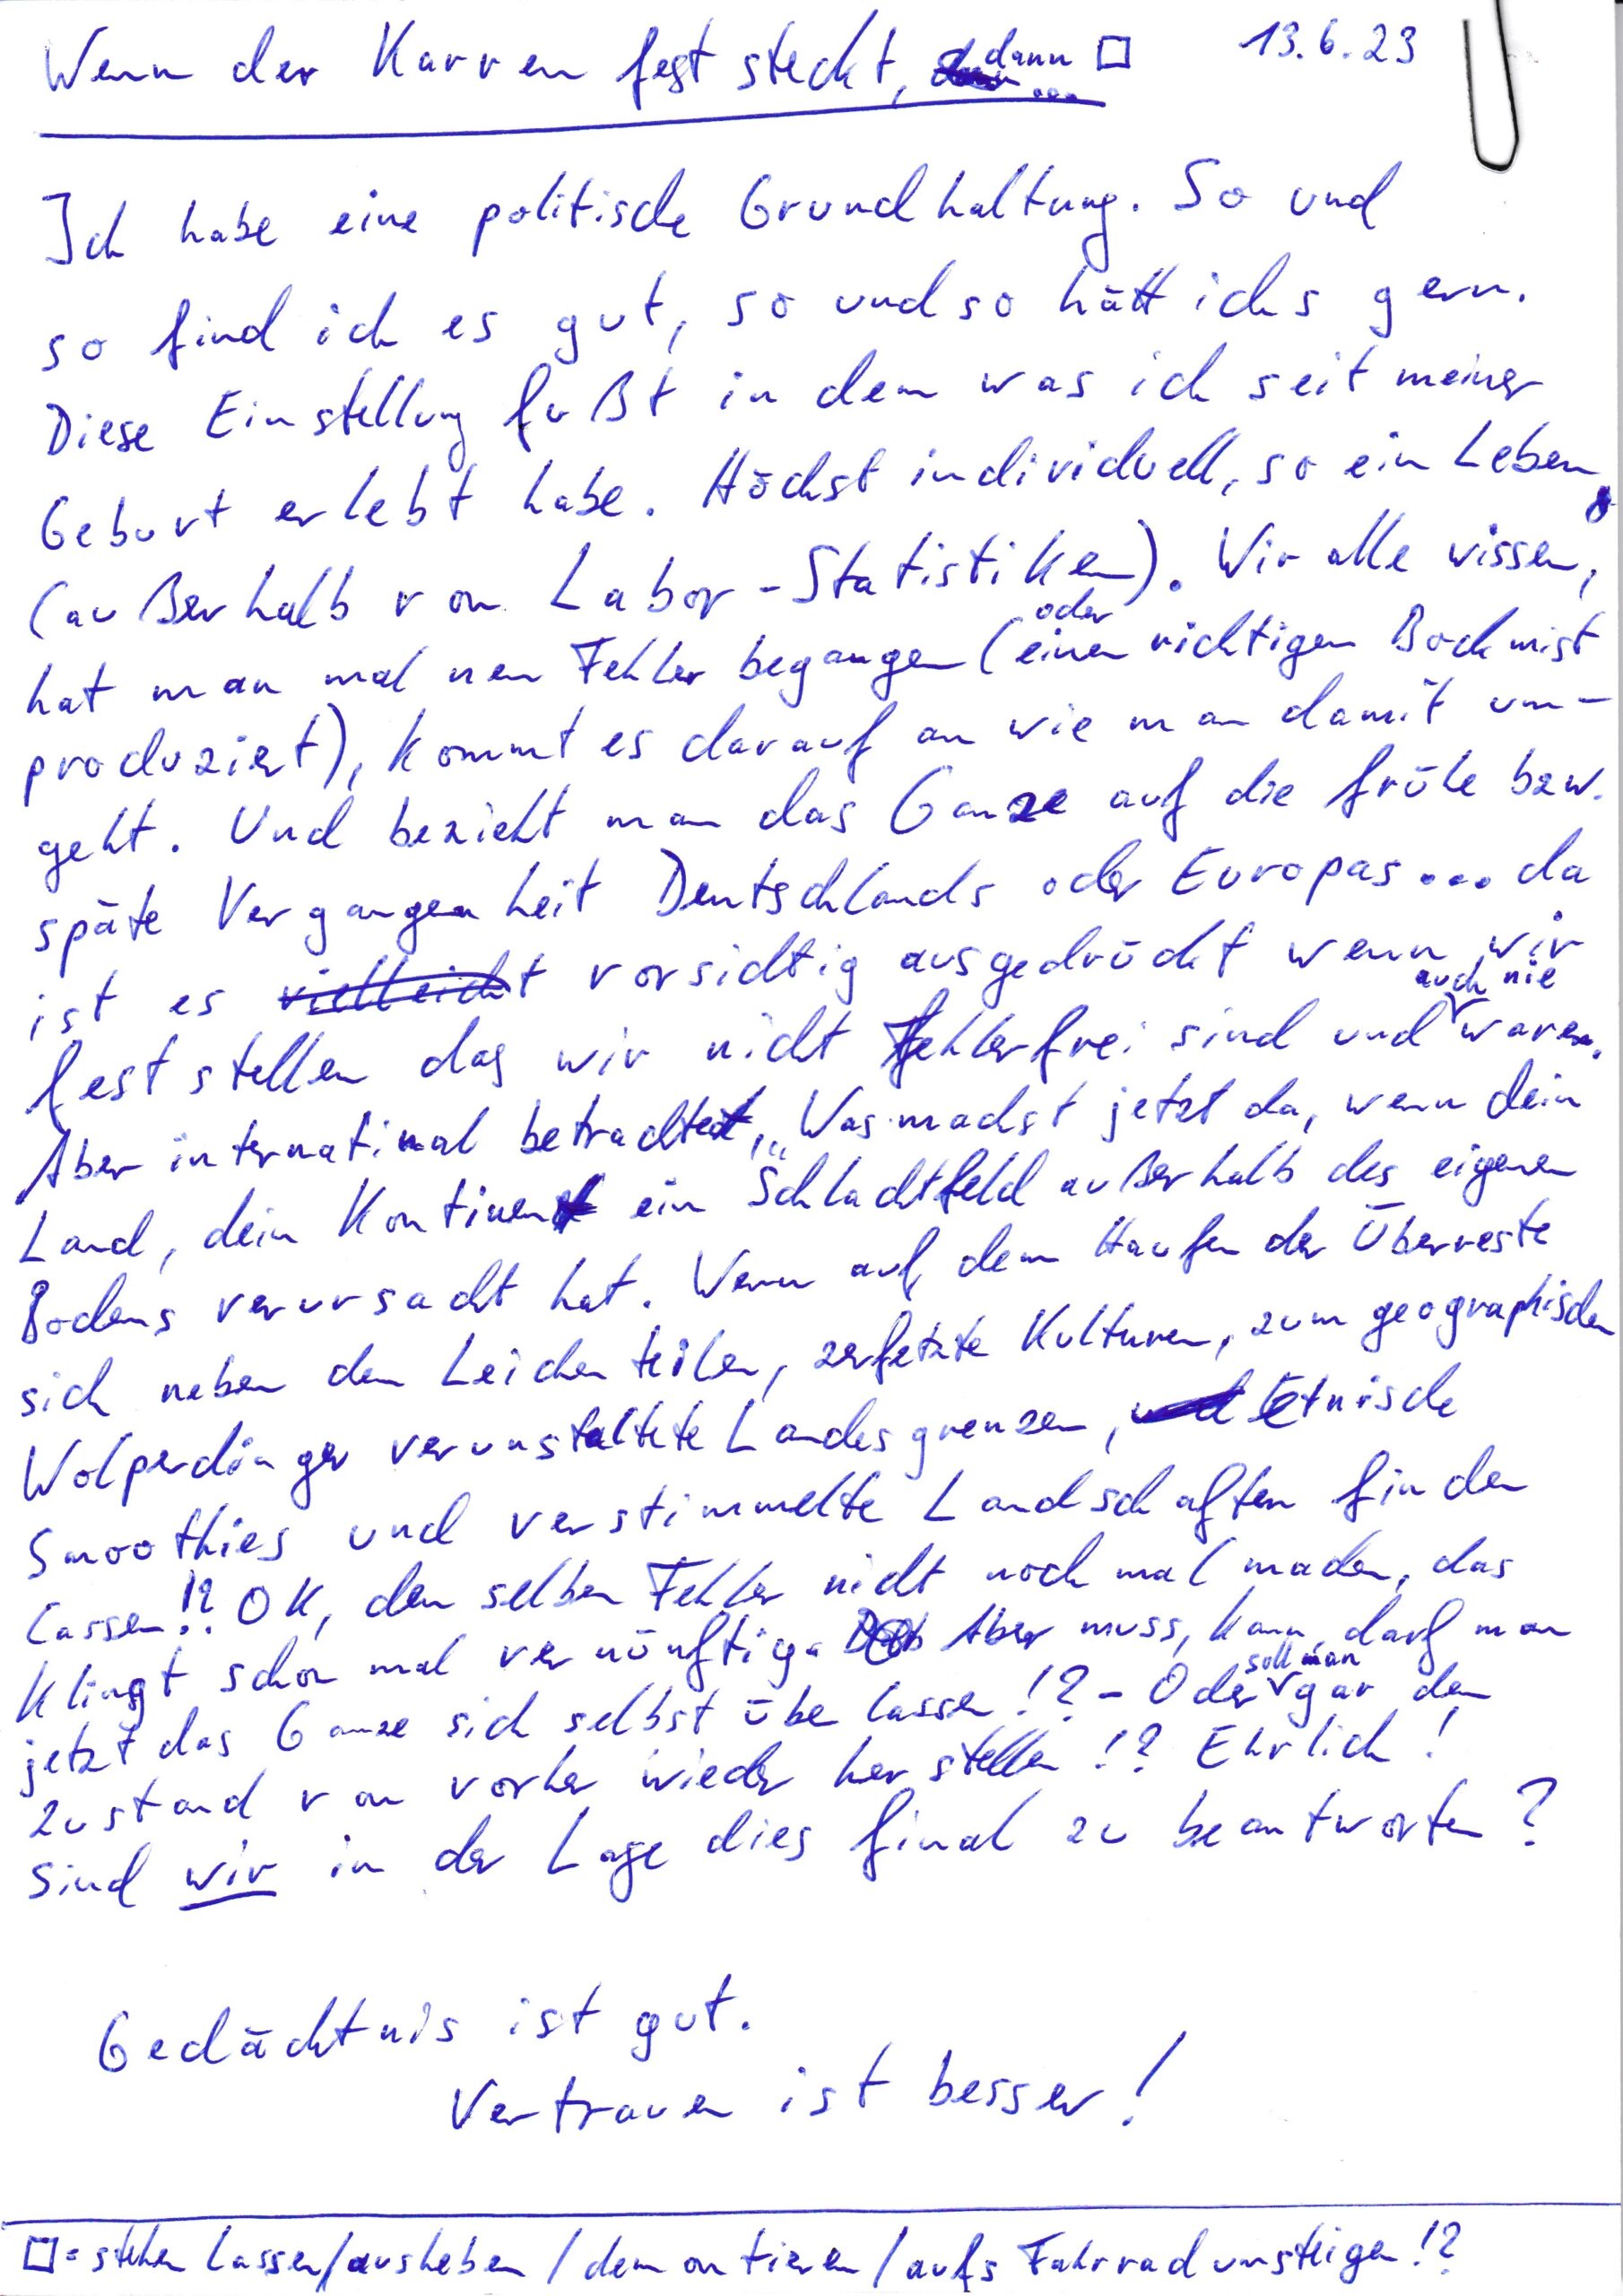 Wenn der Karren fest steckt, dann ... □ 13.6.23
Ich habe eine politische Grundhaltung. So und
so find ich es gut, so und so hätt ichs gern.
Diese Einstellung fußt in dem was ich seit meiner
Geburt erlebt habe. Höchst individuell, so ein Leben
(außerhalb von Labor-Statistiken). Wir alle wissen,
hat man mal nen Fehler begangen (oder einen richtigen Bockmist
produziert), kommt es darauf an wie man damit um-
geht. Und bezieht man das Ganze auf die frühe bzw.
späte Vergangenheit Deutschlands oder Europas... da
ist es vielleicht vorsichtig ausgedrückt wenn wir
feststellen das wir nicht Fehlerfrei sind und auch nie waren.
Aber internatinal betrachtet, "Was machst jetzt da, wenn dein
Land, dein Kontinent ein Schlachtfeld außerhalb des eigenen
Bodens verursacht hat. Wenn auf dem Haufen der Überreste
sich neben den Leichenteilen, zerfetzte Kulturen, zum geographischen
Wolperdinger verunstaltete Landesgrenzen, und Etnische
Smoothies und verstimmelte Landschaften finden
lassen!? OK, den selben Fehler nicht noch mal machen, das
klingt schon mal vernünftig. Aber muss, kann, darf man
jetzt das Ganze sich selbst übelassen!? - Oder soll man gar den
Zustand von vorher wieder herstellen!? Ehrlich!
Sind wir in der Lage dies final zu beantworten?
Gedächtnis ist gut.
Vertrauen ist besser!
□ = stehen lassen/ausheben/demontieren/aufs Fahrrad umsteigen!?